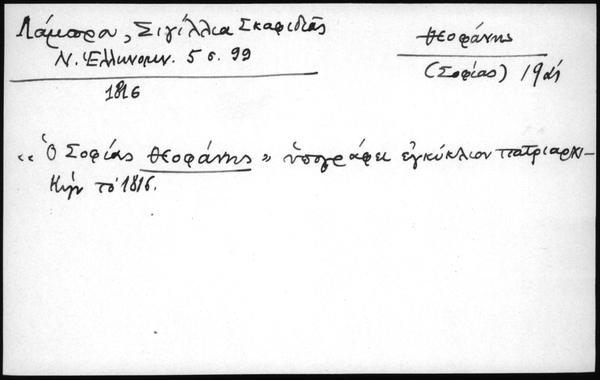 Λάμπρου, Σιγίλλια Σκαφιδιᾶς
Ν. Ἑλληνομν. 5 σ. 99
1816
Θεοφάνης
(Σοφίας) 19
«Ὁ Σοφίας Θεοφάνης» ὑπογράφει ἐγκύκλιον πατριαρχι-
κὴν τὸ 1816.